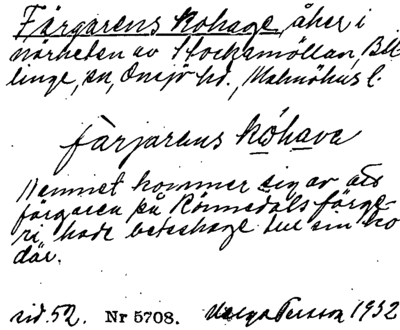 Färgarens kohage, åker i
närheten av Stockamöllan, Bil-
linge, sn, Onsjö hd., Malmöhus l.
färjarens kóhava
Namnet kommer sig av att
färgaren på Rönnedals färge-
ri hade beteshage för sin ko
där.
sid. 52. Nr 5708. Helga Persson 1932